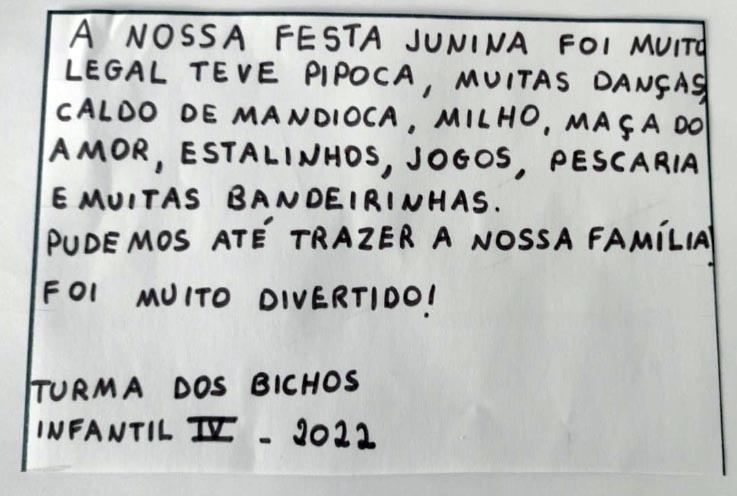 A NOSSA FESTA JUNINA FOI MUITO
LEGAL TEVE PIPOCA, MUITAS DANÇAS,
CALDO DE MANDIOCA, MILHO, MAÇA DO
AMOR, ESTALINHOS, JOGOS, PESCARIA
E MUITAS BANDEIRINHAS.
PUDEMOS ATÉ TRAZER A NOSSA FAMÍLIA!
FOI MUITO DIVERTIDO!
TURMA DOS BICHOS
INFANTIL IV - 2022